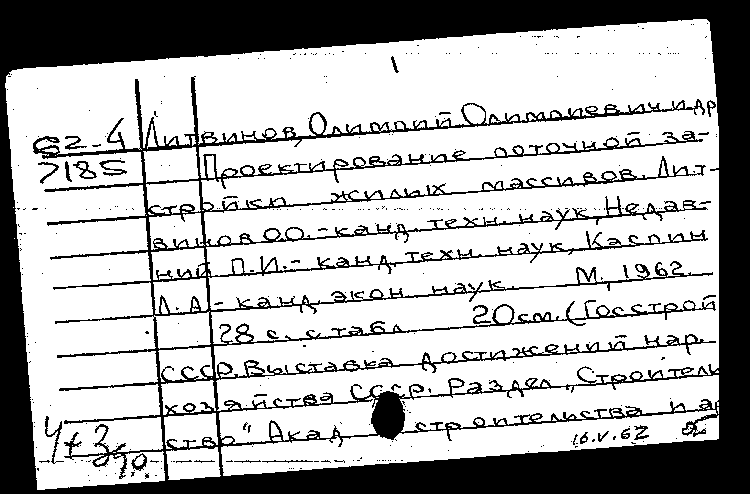 62-4 Литвинов, Олимпий Олимпиевич и др
7185 Проектирование поточной за-
стройки жилых массивов. Лит-
винов О.О. - канд. техн. наук, Недав-
ний П.И. - канд. техн. наук, Каспин
Л.А - канд. экон. наук. М., 1962.
28 с. с табл 20см. (Госстрой
СССР. Выставка достижений нар.
хозяйства СССР. Раздел „Строитель
ство" Акад строительства и ар
16.V.62